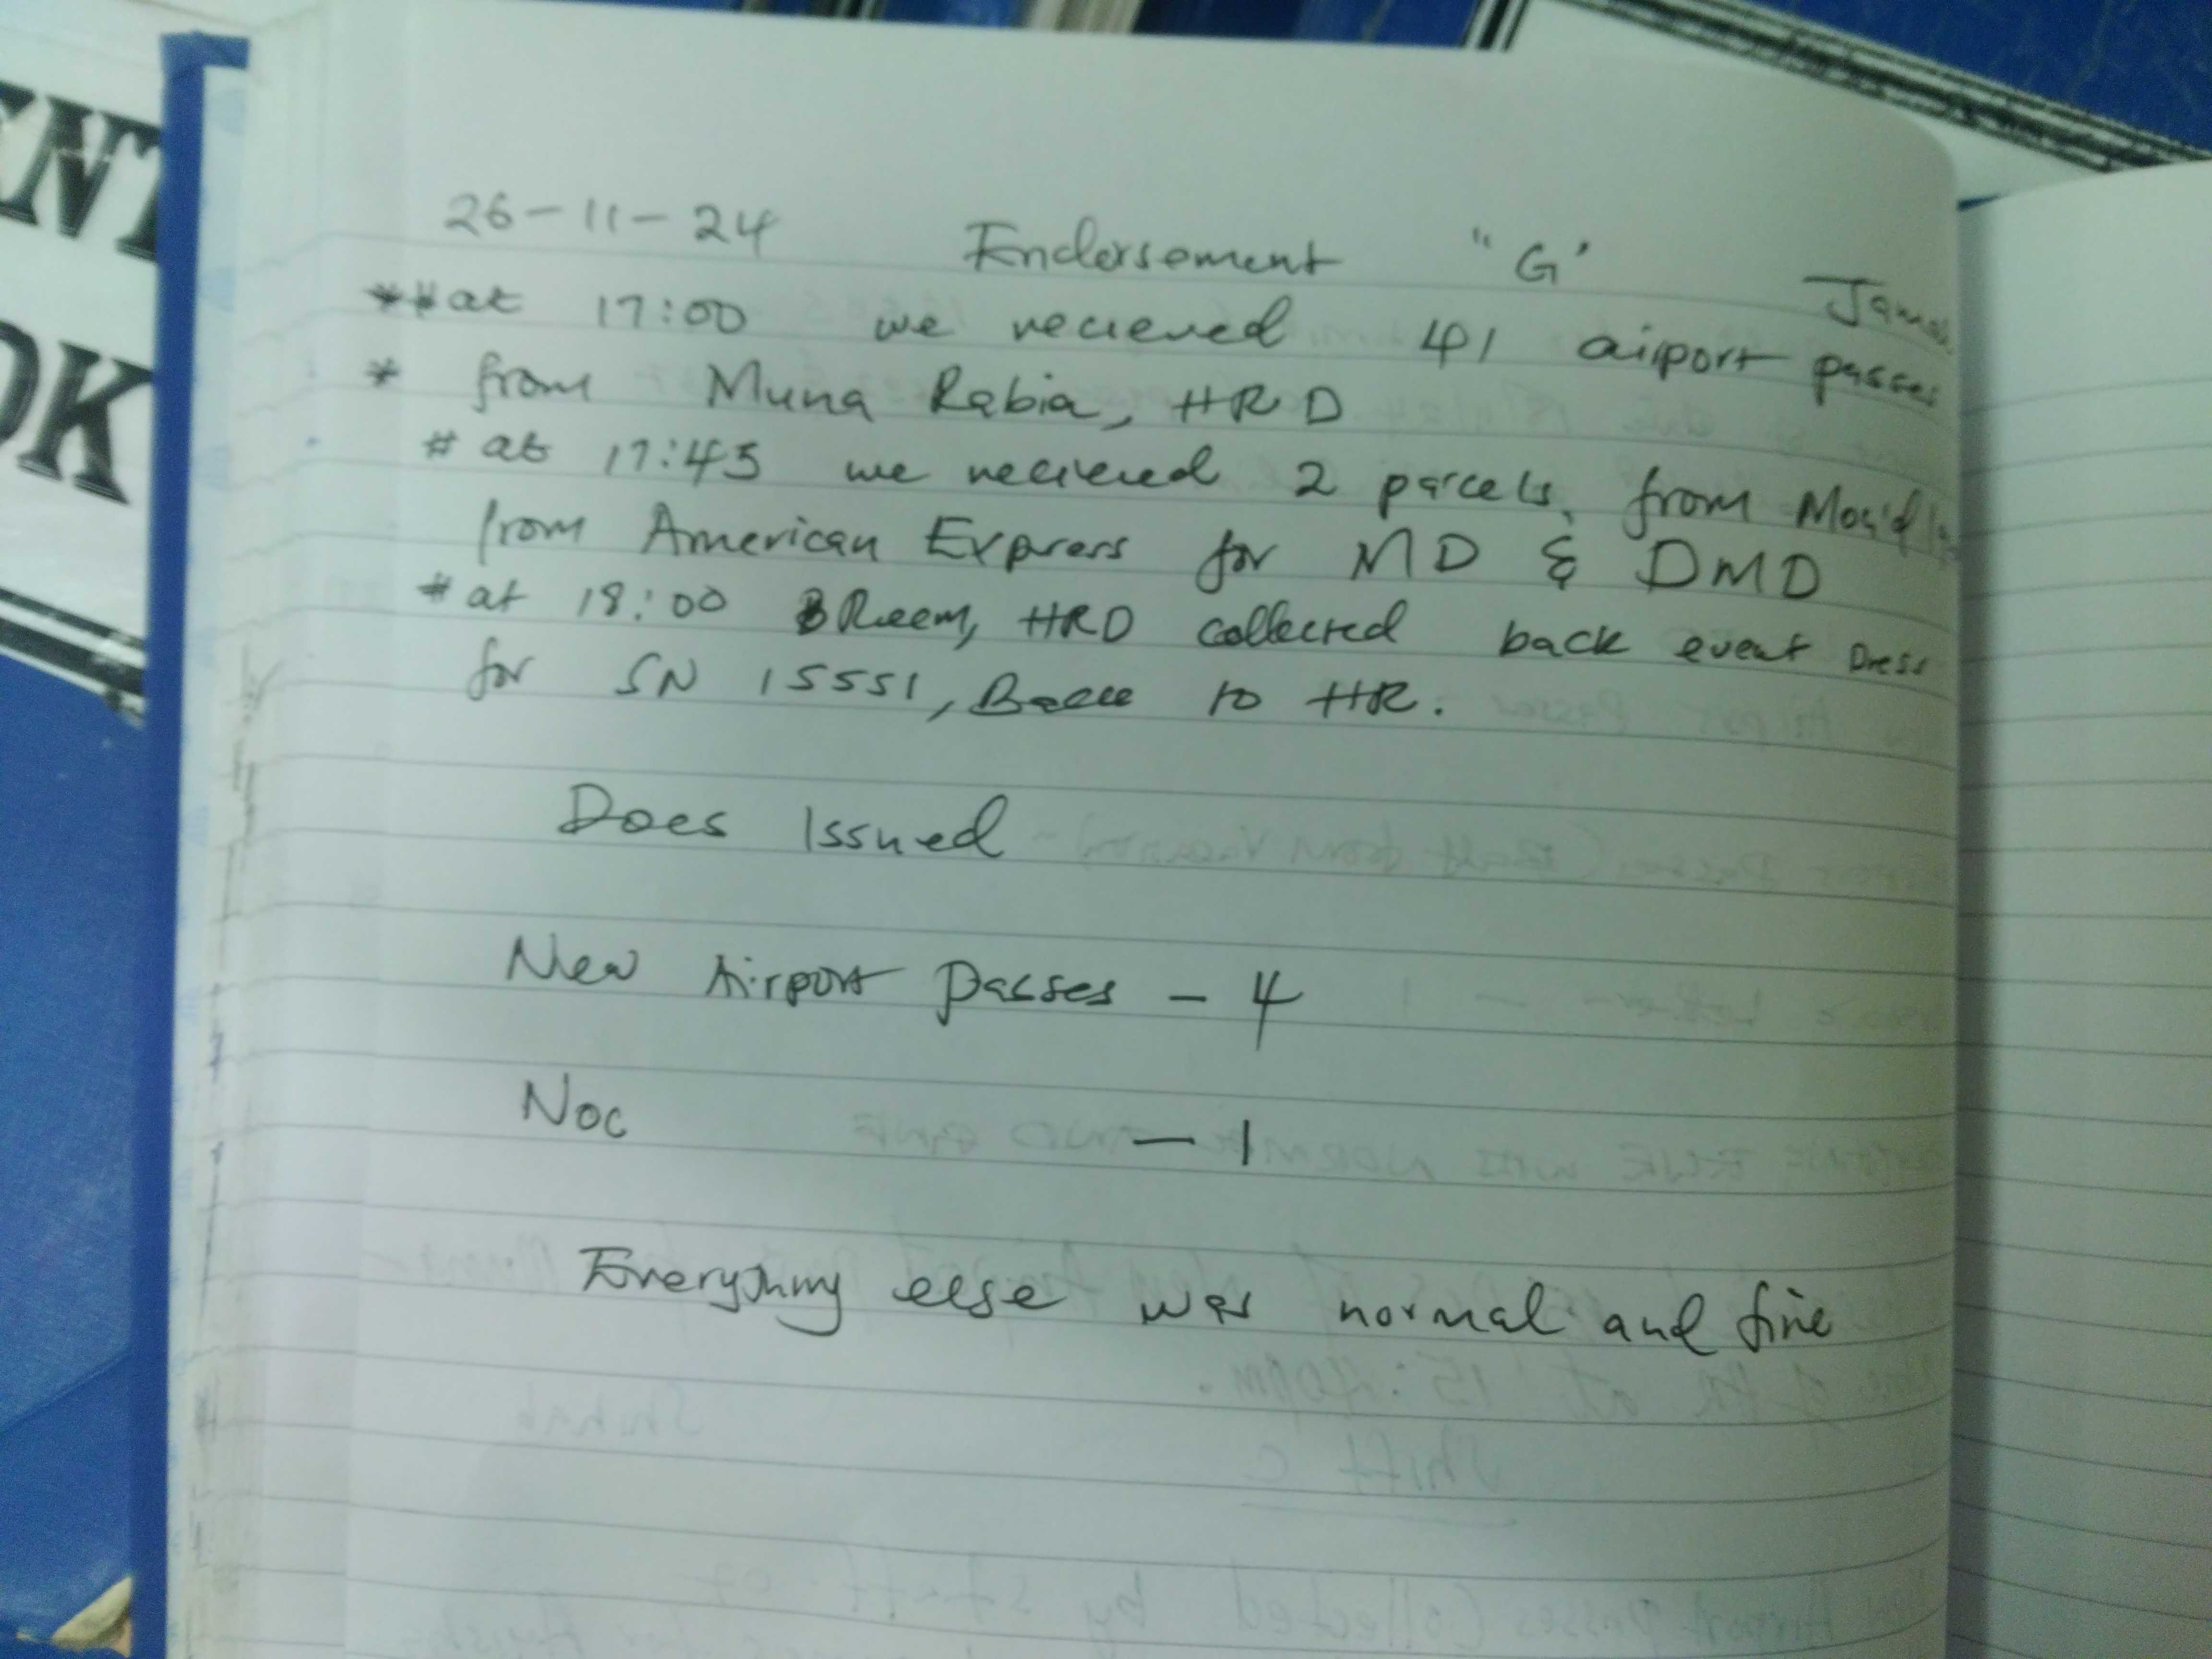 ENT
OK
26-11-24 Endorsement "G' Jamal
*#at 17:00 we recieved 41 airport passes
* from Muna Rabia, HRD
# at 17:45 we recieved 2 parcels, from
from American Express for MD & DMD
#at 18:00 Reem, HRD collected back event Dress
for SN 15551, to HR.
Docs Issued
New Airport Passes - 4
Noc - 1
Everything else was normal and fine